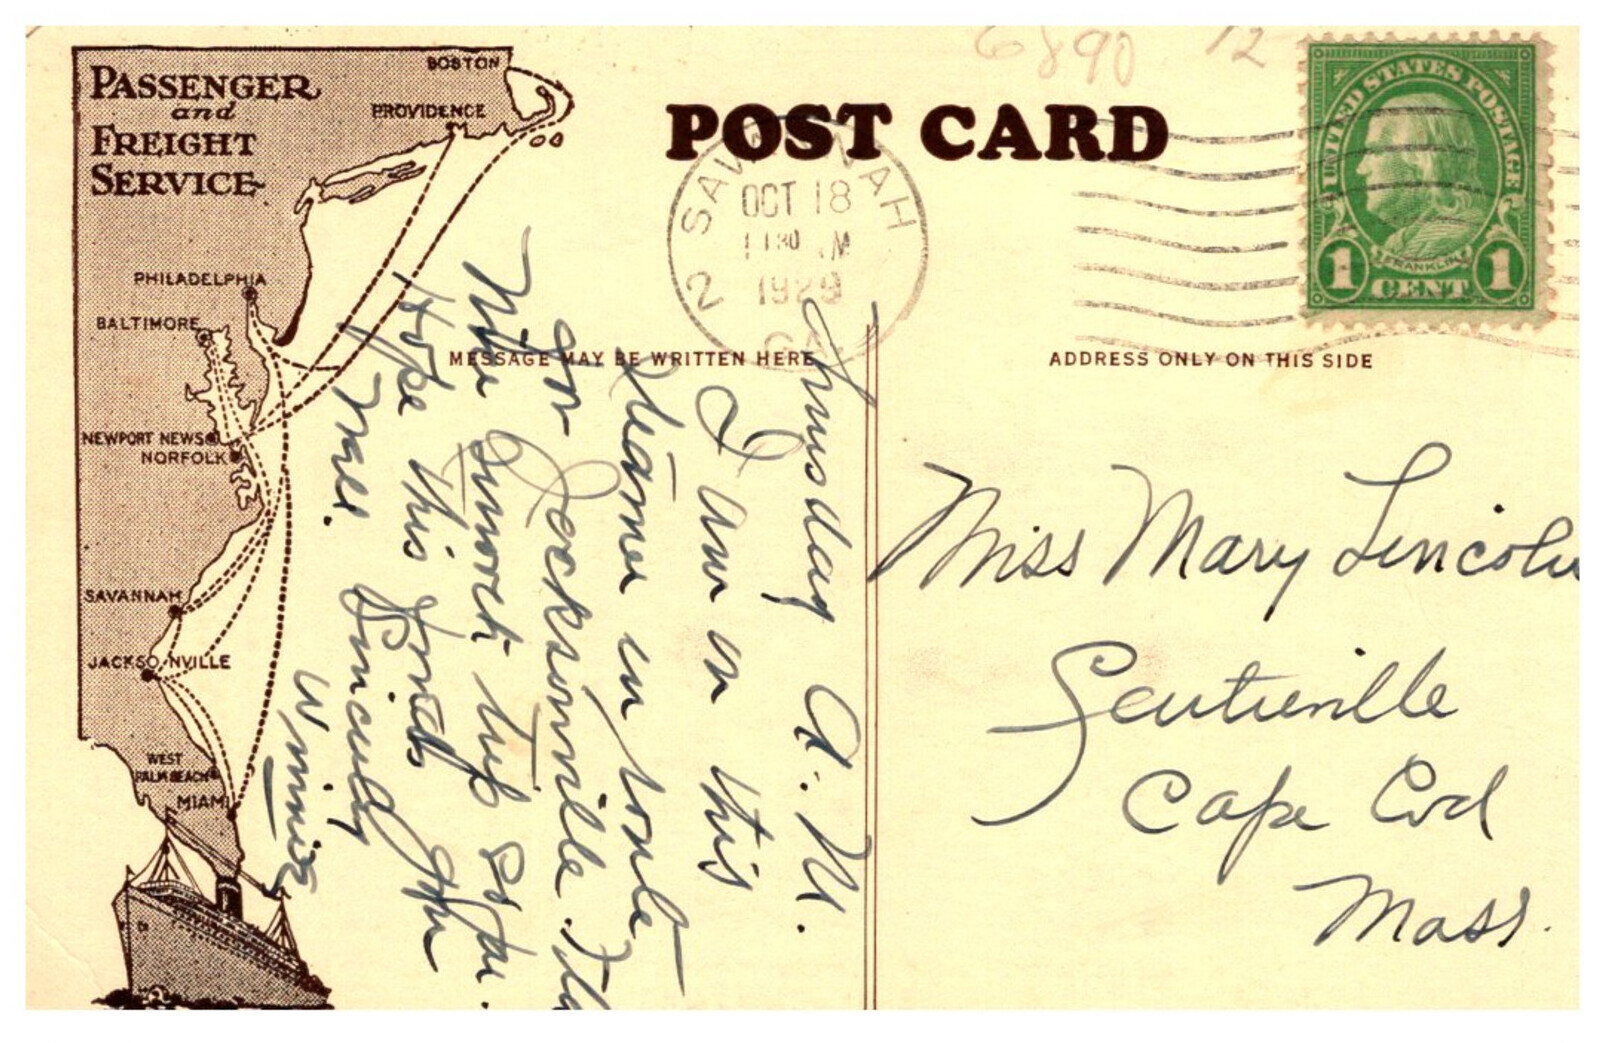 PASSENGER
and
FREIGHT
SERVICE
BOSTON
PROVIDENCE
PHILADELPHIA
BALTIMORE
NEWPORT NEWS
NORFOLK
SAVANNAH
JACKSONVILLE
WEST
PALM BEACH
MIAMI
6890 12
POST CARD
SAVANNAH
OCT 18
1130 M
1929
GA.
2
UNITED STATES POSTAGE
FRANKLIN
1 CENT 1
MESSAGE MAY BE WRITTEN HERE
ADDRESS ONLY ON THIS SIDE
Thursday A.M.
I am on this
steamer in route
for Jacksonville Fla
Nice smooth trip so far.
Hope this finds you
well. Sincerely
Winnie
Miss Mary Lincoln
Centerville
Cape Cod
Mass.